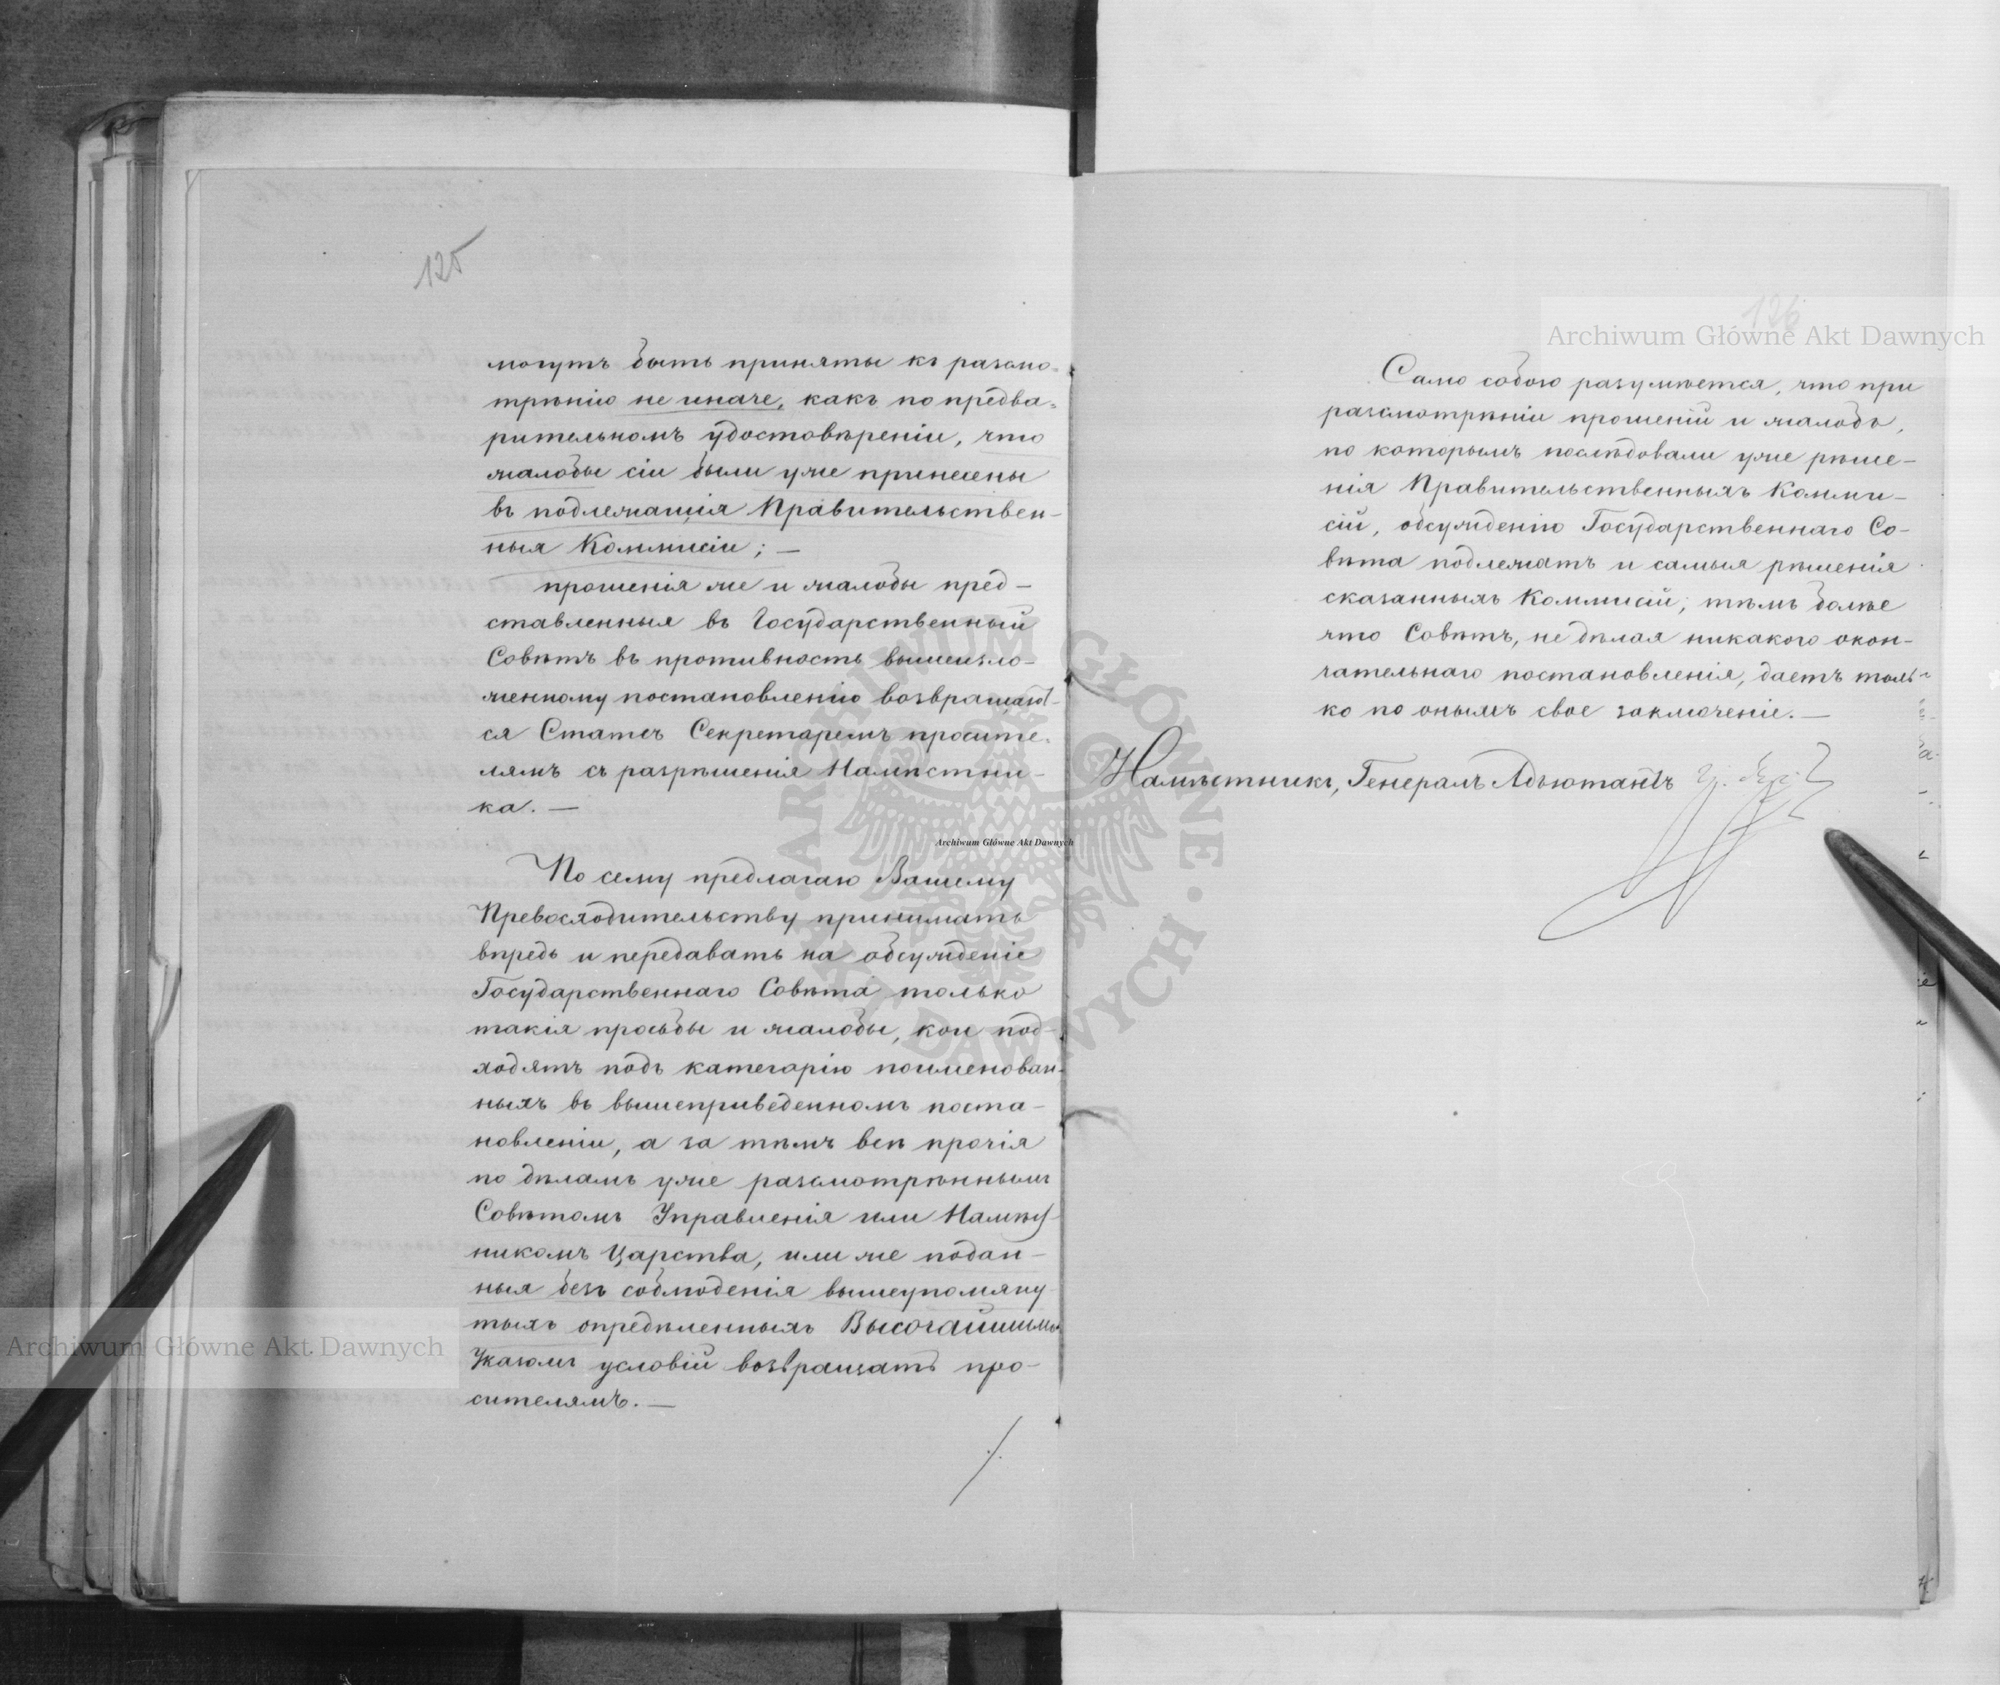 125
могутъ быть приняты къ разсмо-
трѣнію не иначе, какъ по предва-
рительномъ удостовѣреніи, что
жалобы сіи были уже принесены
въ подлежащія Правительствен-
ныя Коммисіи; —
прошенія же и жалобы пред-
ставленныя въ Государственный
Совѣтъ въ противность вышеизло-
женному постановленію возвращают-
ся Статсъ Секретаремъ просите-
лямъ съ разрѣшенія Намѣстни-
ка. —
По сему предлагаю Вашему
Превосходительству принимать
впредь и передавать на обсужденіе
Государственнаго Совѣта только
такія просьбы и жалобы, кои под-
ходятъ подъ категорію поименован-
ныхъ въ вышеприведенномъ поста-
новленіи, а за тѣмъ всѣ прочія
по дѣламъ уже разсмотрѣннымъ
Совѣтомъ Управленія или Намѣст-
никомъ Царства, или же подан-
ныя безъ соблюденія вышеупомяну-
тыхъ опредѣленныхъ Высочайшимъ
Указомъ условій возвращать про-
сителямъ. —
126
Само собою разумѣется, что при
разсмотрѣніи прошеній и жалобъ,
по которымъ послѣдовали уже рѣше-
нія Правительственныхъ Комми-
сій, обсужденію Государственнаго Со-
вѣта подлежатъ и самыя рѣшенія
сказанныхъ Коммисій, тѣмъ болѣе
что Совѣтъ, не дѣлая никакого окон-
чательнаго постановленія, даетъ толь-
ко по онымъ свое заключеніе. —
Намѣстникъ, Генералъ Адъютантъ
Archiwum Główne Akt Dawnych
Archiwum Główne Akt Dawnych
Archiwum Główne Akt Dawnych
ARCHIWUM GŁÓWNE AKT DAWNYCH